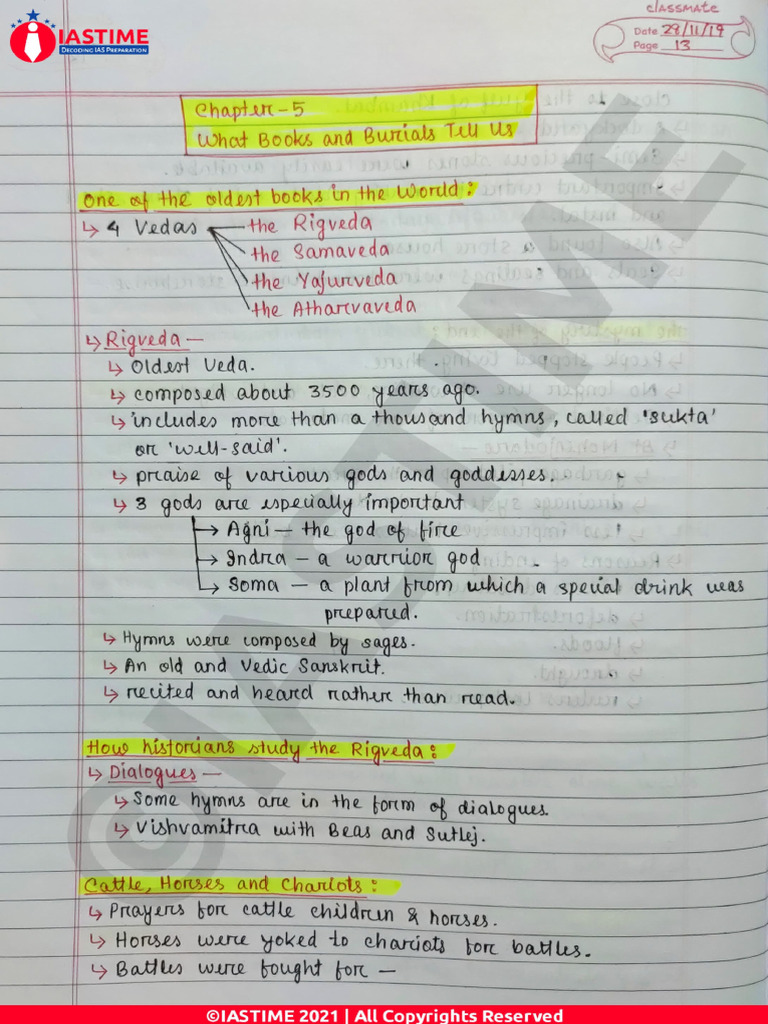 IASTIME
DECODING IAS PREPARATION
classmate
Date 29/11/19
Page 13
Chapter-5
What Books and Burials Tell Us
One of the oldest books in the World:
↳ 4 Vedas
the Rigveda
the Samaveda
the Yajurveda
the Atharvaveda
↳ Rigveda —
↳ Oldest Veda.
↳ composed about 3500 years ago.
↳ includes more than a thousand hymns, called 'sukta'
or 'well-said'.
↳ praise of various gods and goddesses.
↳ 3 gods are especially important
→ Agni — the god of fire
→ Indra — a warrior god
↳ Soma — a plant from which a special drink was
prepared.
↳ Hymns were composed by sages.
↳ An old and Vedic Sanskrit.
↳ recited and heard rather than read.
How historians study the Rigveda:
↳ Dialogues —
↳ Some hymns are in the form of dialogues.
↳ Vishvamitra with Beas and Sutlej.
Cattle, Horses and Chariots:
↳ Prayers for cattle children & horses.
↳ Horses were yoked to chariots for battles.
↳ Battles were fought for —
©IASTIME
©IASTIME 2021 | All Copyrights Reserved